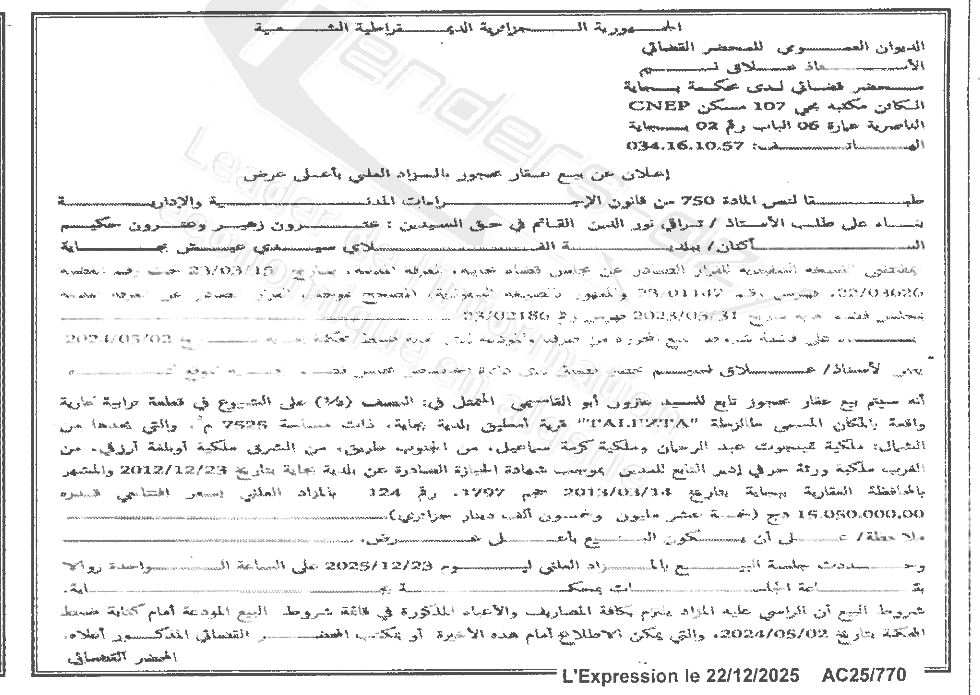 الجمهورية الجزائرية الديمقراطية الشعبية
الديوان العمومي للمحضر القضائي
الأستاذ عـلاق نسيم
محضر قضائي لدى محكمة بجاية
الكائن مكتبه بحي 107 مسكن CNEP
الناصرية عمارة 06 الباب رقم 02 بجاية
الهاتف: 034.16.10.57
إعلان عن بيع عقار محجوز بالمزاد العلني بأعلى عرض
طبقا لنص المادة 750 من قانون الإجراءات المدنية والإدارية
بناء على طلب الأستاذ / تراقي نور الدين القائم في حق السيدين : عزرون زهير وعزرون حكيم
الساكنان/ ببلدية الفلاي سيدي عيش بجاية
بمقتضى النسخة التنفيذية للقرار الصادر عن مجلس قضاء بجاية، الغرفة المدنية، بتاريخ 23/03/15 تحت رقم
22/03626، فهرس رقم 23/01147 والممهور بالصيغة التنفيذية، المصحح بموجب القرار الصادر عن الغرفة المدنية
بمجلس قضاء بجاية بتاريخ 2023/05/31 فهرس رقم 23/02186
على قائمة شروط البيع المحررة من طرفنا والمودعة بكتابة ضبط محكمة بجاية بتاريخ 2024/05/02
نحن الأستاذ/ عـلاق نسيم محضر قضائي لدى دائرة اختصاص مجلس قضاء بجاية الموقع أدناه
أنه سيتم بيع عقار محجوز تابع للسيد عزرون أبو القاسمي المتمثل في: النصف (½) على الشيوع في قطعة ترابية عارية
واقعة بالمكان المسمى طالزطة "TALEZTA" قرية بلدية بجاية، ذات مساحة 7525 م²، والتي يحدها من
الشمال: ملكية عبد الرحمان وملكية سماعيل، من الجنوب طريق، من الشرق ملكية أرزقي، من
الغرب ملكية ورثة بموجب شهادة الحيازة الصادرة عن بلدية بجاية بتاريخ 2012/12/23 والمشهر
بالمحافظة العقارية ببجاية بتاريخ 2013/03/14 حجم 1797، رقم 124 بالمزاد العلني بسعر افتتاحي قدره
15.050.000,00 دج (خمسة عشر مليون وخمسون ألف دينار جزائري)
ملاحظة/ على أن يكون البيع بأعلى عرض.
وحددت جلسة البيع بالمزاد العلني ليوم 2025/12/23 على الساعة الواحدة زوالا
بقاعة الجلسات بمحكمة بجاية.
شروط البيع أن الراسي عليه المزاد يلتزم بكافة المصاريف والأعباء المذكورة في قائمة شروط البيع المودعة أمام كتابة ضبط
المحكمة بتاريخ 2024/05/02، والتي يمكن الاطلاع أمام هذه الأخيرة أو بمكتب المحضر القضائي المذكور أعلاه.
المحضر القضائي
L'Expression le 22/12/2025 AC25/770
Tendersdz
Leader de l'information